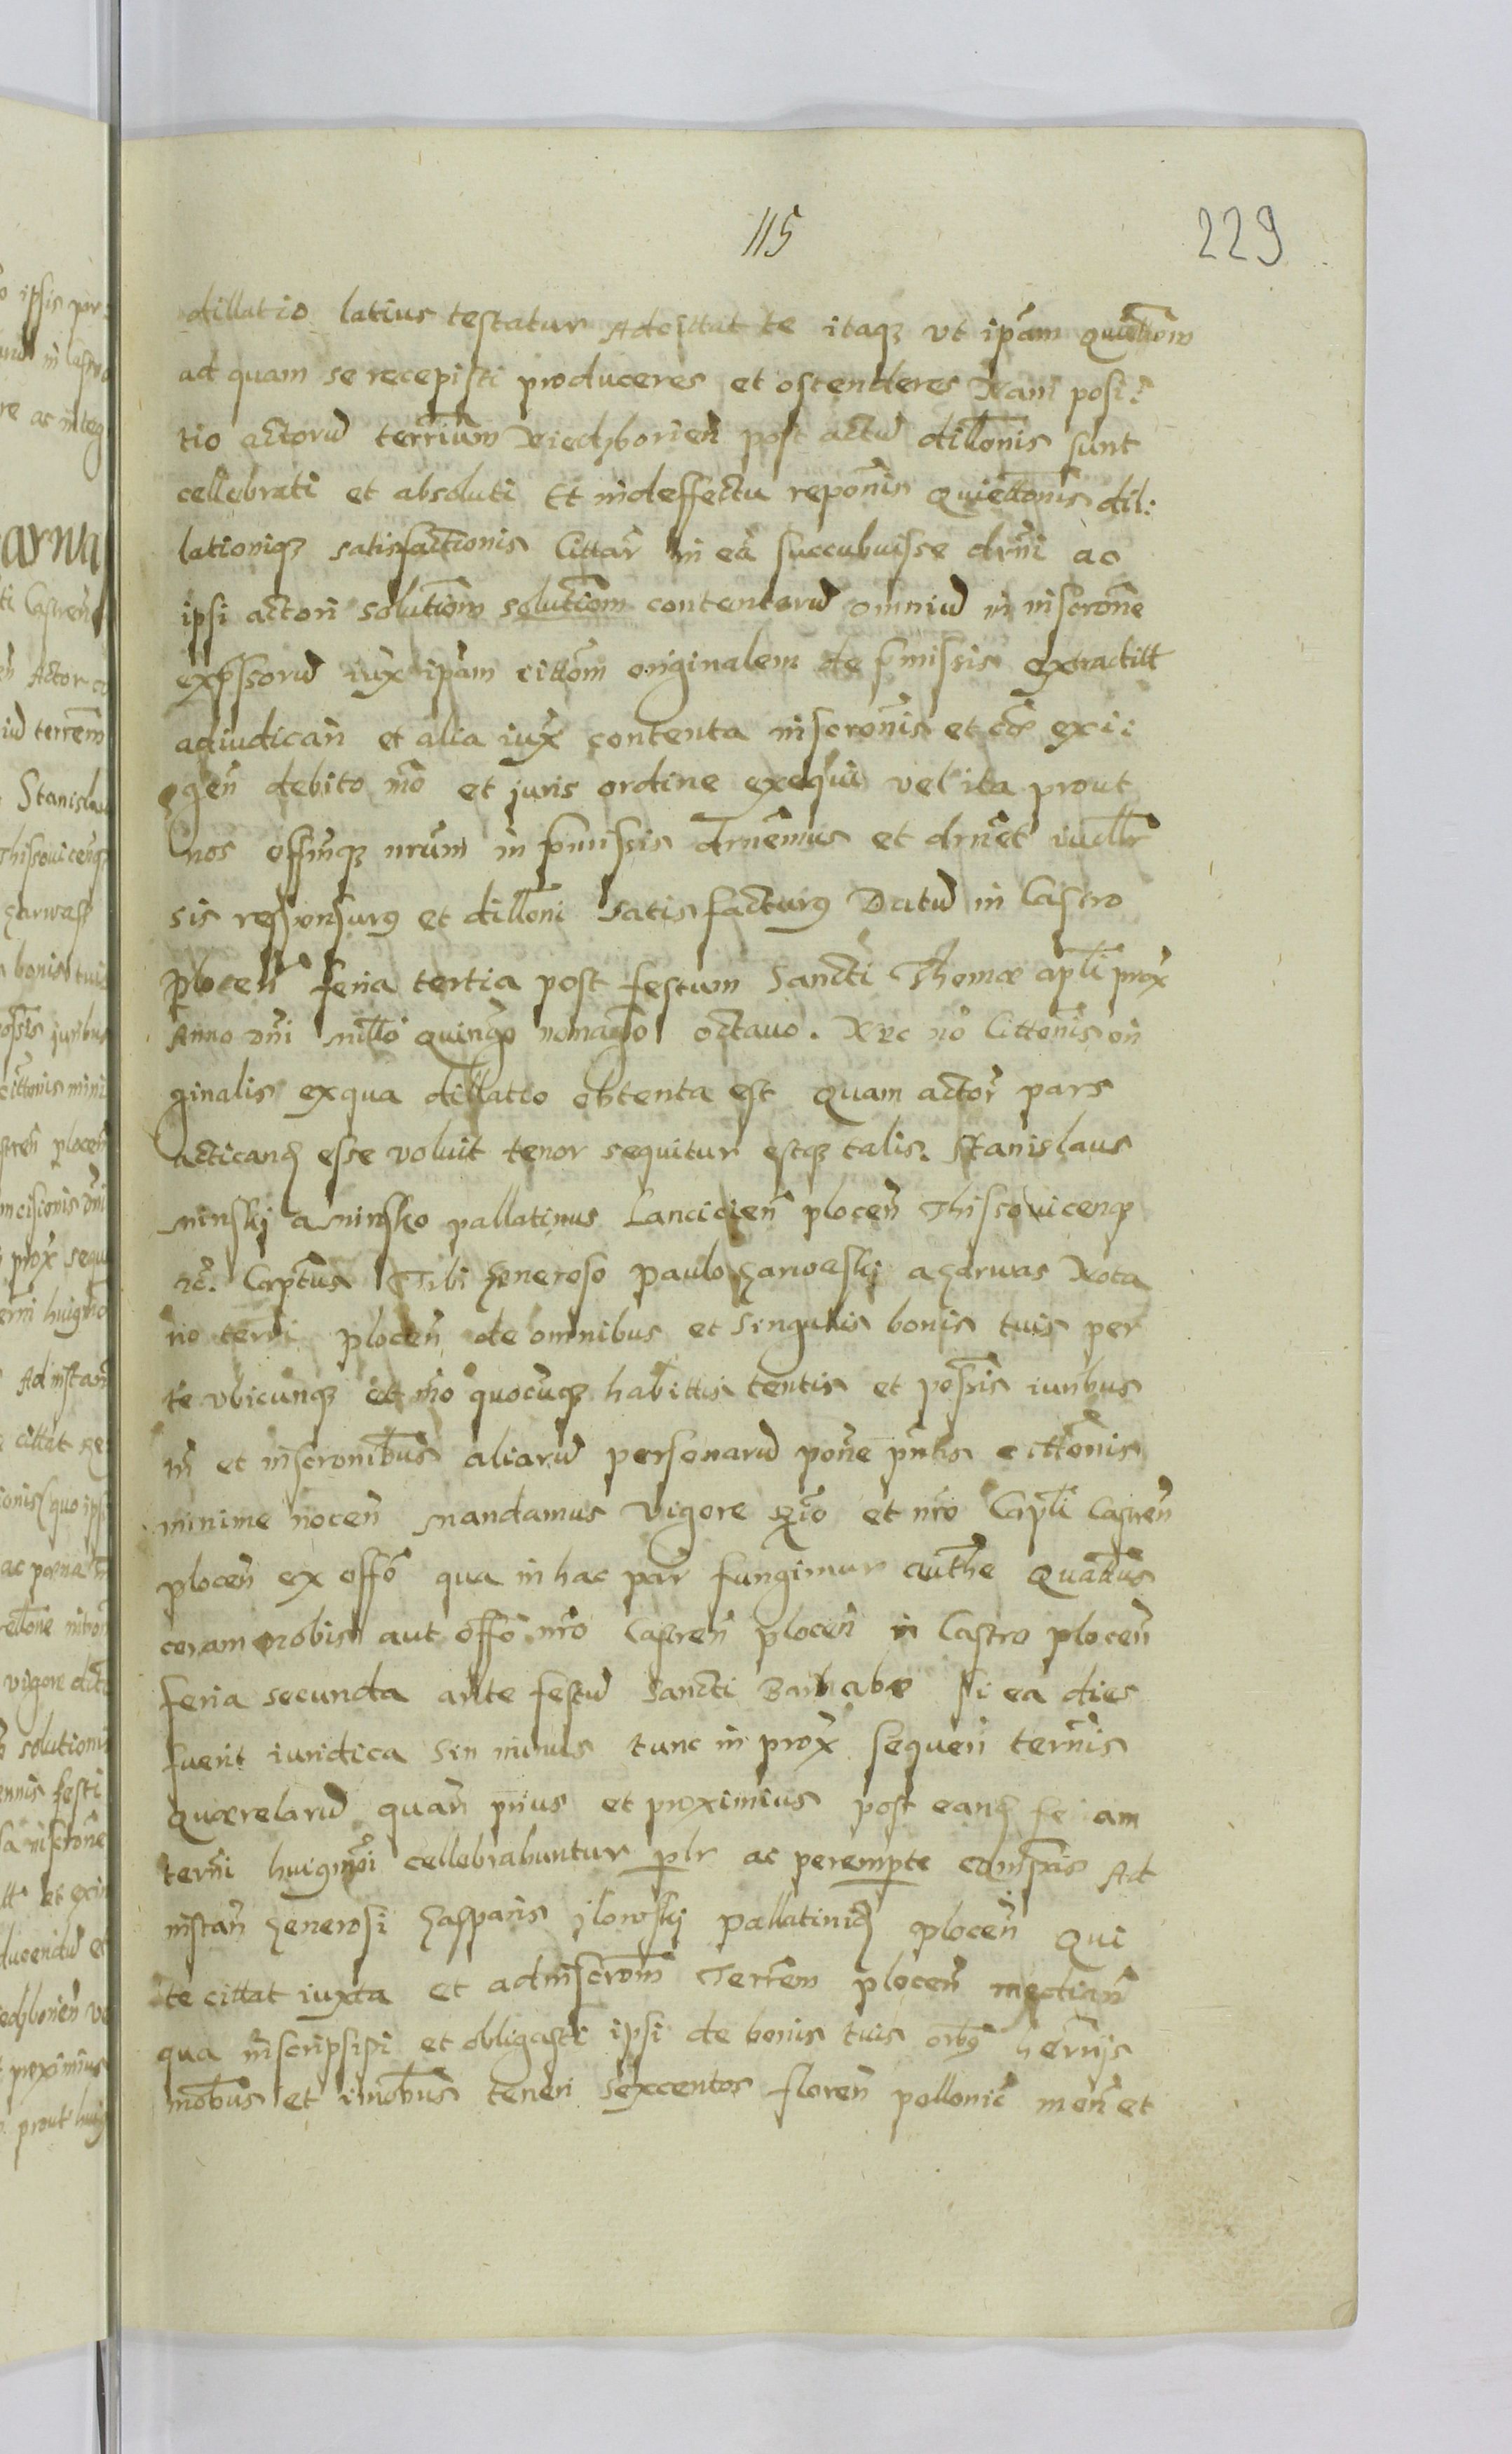 115
229
dillatio latius testatur Adcittat te itaq₃ vt ip̃am Quiettõem
ad quam se recepisti produceres et ostenderes Nam posi:
tio actorũ terr̃ium Niedzborień post actũ dillõnis sunt
cellebrati et absoluti Et in deffectu repõnis Quiettõnis dil:
lationiq₃ satisfactionis Cittar̃ in eã succubuisse dr̃ni ac
ipsi actori solutiõem solutiõem contentorũ omniũ in inscrõne
expr̃ssorũ iux̃ ip̃am cittõm originalem de p̃missis extractitt
adiudicañ et alia iux̃ contenta inscrõnis et exi:
geñ debito mõ et juris ordine exequi vel ita prout
nos offm̃q₃ nrũm in p̃missis dr̃nemus et dr̃net iudlr̃
sis responsurꝰ et dillõni satisfacturꝰ Datũ in Castro
Ploceñ feria tertia post festum Sancti Thomæ apl̃i prox̃
Anno dñi millõ quingõ nonagõ octauo. Nec nõ Cittõnis ori
ginalis ex qua dillatio obtenta est Quam actor̃ pars
acticand esse voluit tenor sequitur estq₃ talis. Stanislaus
Minskj a Minsko pallatinus Lancicieñ ploceñ Thissouiceñq₃
zc̃. Captũs Tibi Generoso Paulo Garwaskj a Garwas Nota
rio terri ploceñ de omnibus et Singulis bonis tuis per
te vbicunq₃ et mõ quocũq₃ habittis tentis et possis iuribus
et inscronibus aliarũ personarũ põne pñtis cittõnis
minime noceñ Mandamus Vigore Regio et nr̃o Capl̃i Castreñ
ploceñ ex offõ qua in hac par̃ fungimur authe Quattũs
coram nobis aut offõ nr̃o Castreñ ploceñ in Castro ploceñ
feria secunda ante festũ Sancti Barnabæ si ea dies
fuerit iuridica Sin minus tunc in prox̃ sequeñ terñis
quærelarũ quañ prius et proximius post eand feriam
terñi huiꝰmõi cellebrabuntur plr ac perempte compĩs Ad
instañ Generosi Gasparis Jlowskj Pallatinid ploceñ Qui
te cittat iuxta et ad inscrõm Terr̃em ploceñ mediañ
qua inscripsisti et obligasti ipsi de bonis tuis orbꝰ her̃ijs
mõbus et imõbus teneri Sexcentos floreñ pollonic̃ moñ et